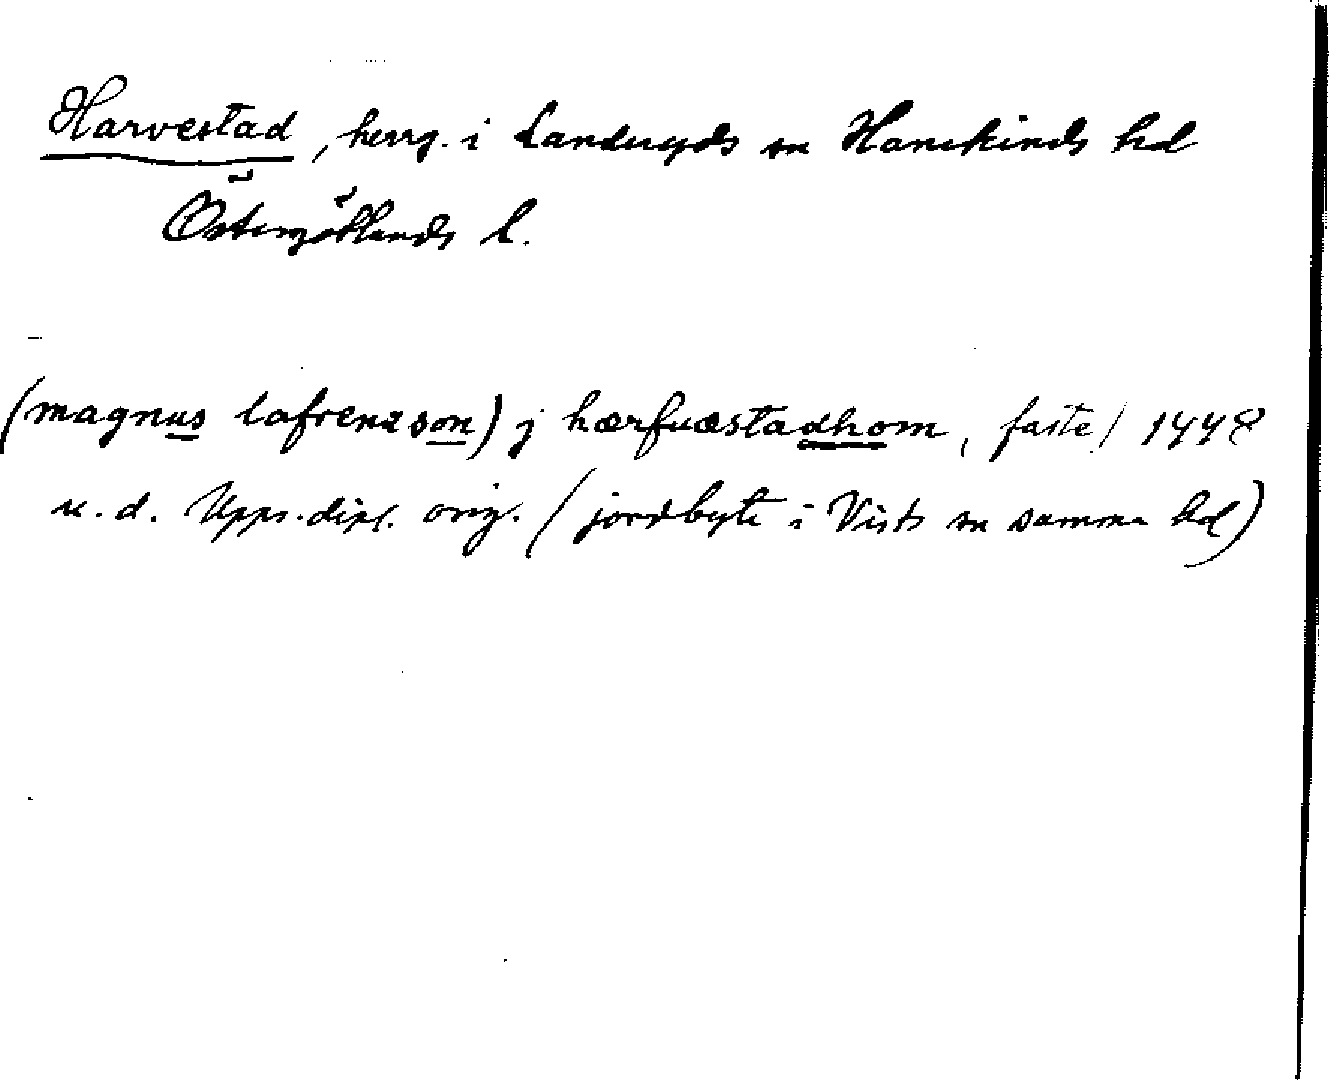 Harvestad, herrg. i Landeryds sn Hanekinds hd
Östergötlands l.
(magnus lafrenzson) j hærfuæstadhom, faste/ 1448
u. d. Upps. dipl. orig. (jordbyte i Vists sn samma hd)